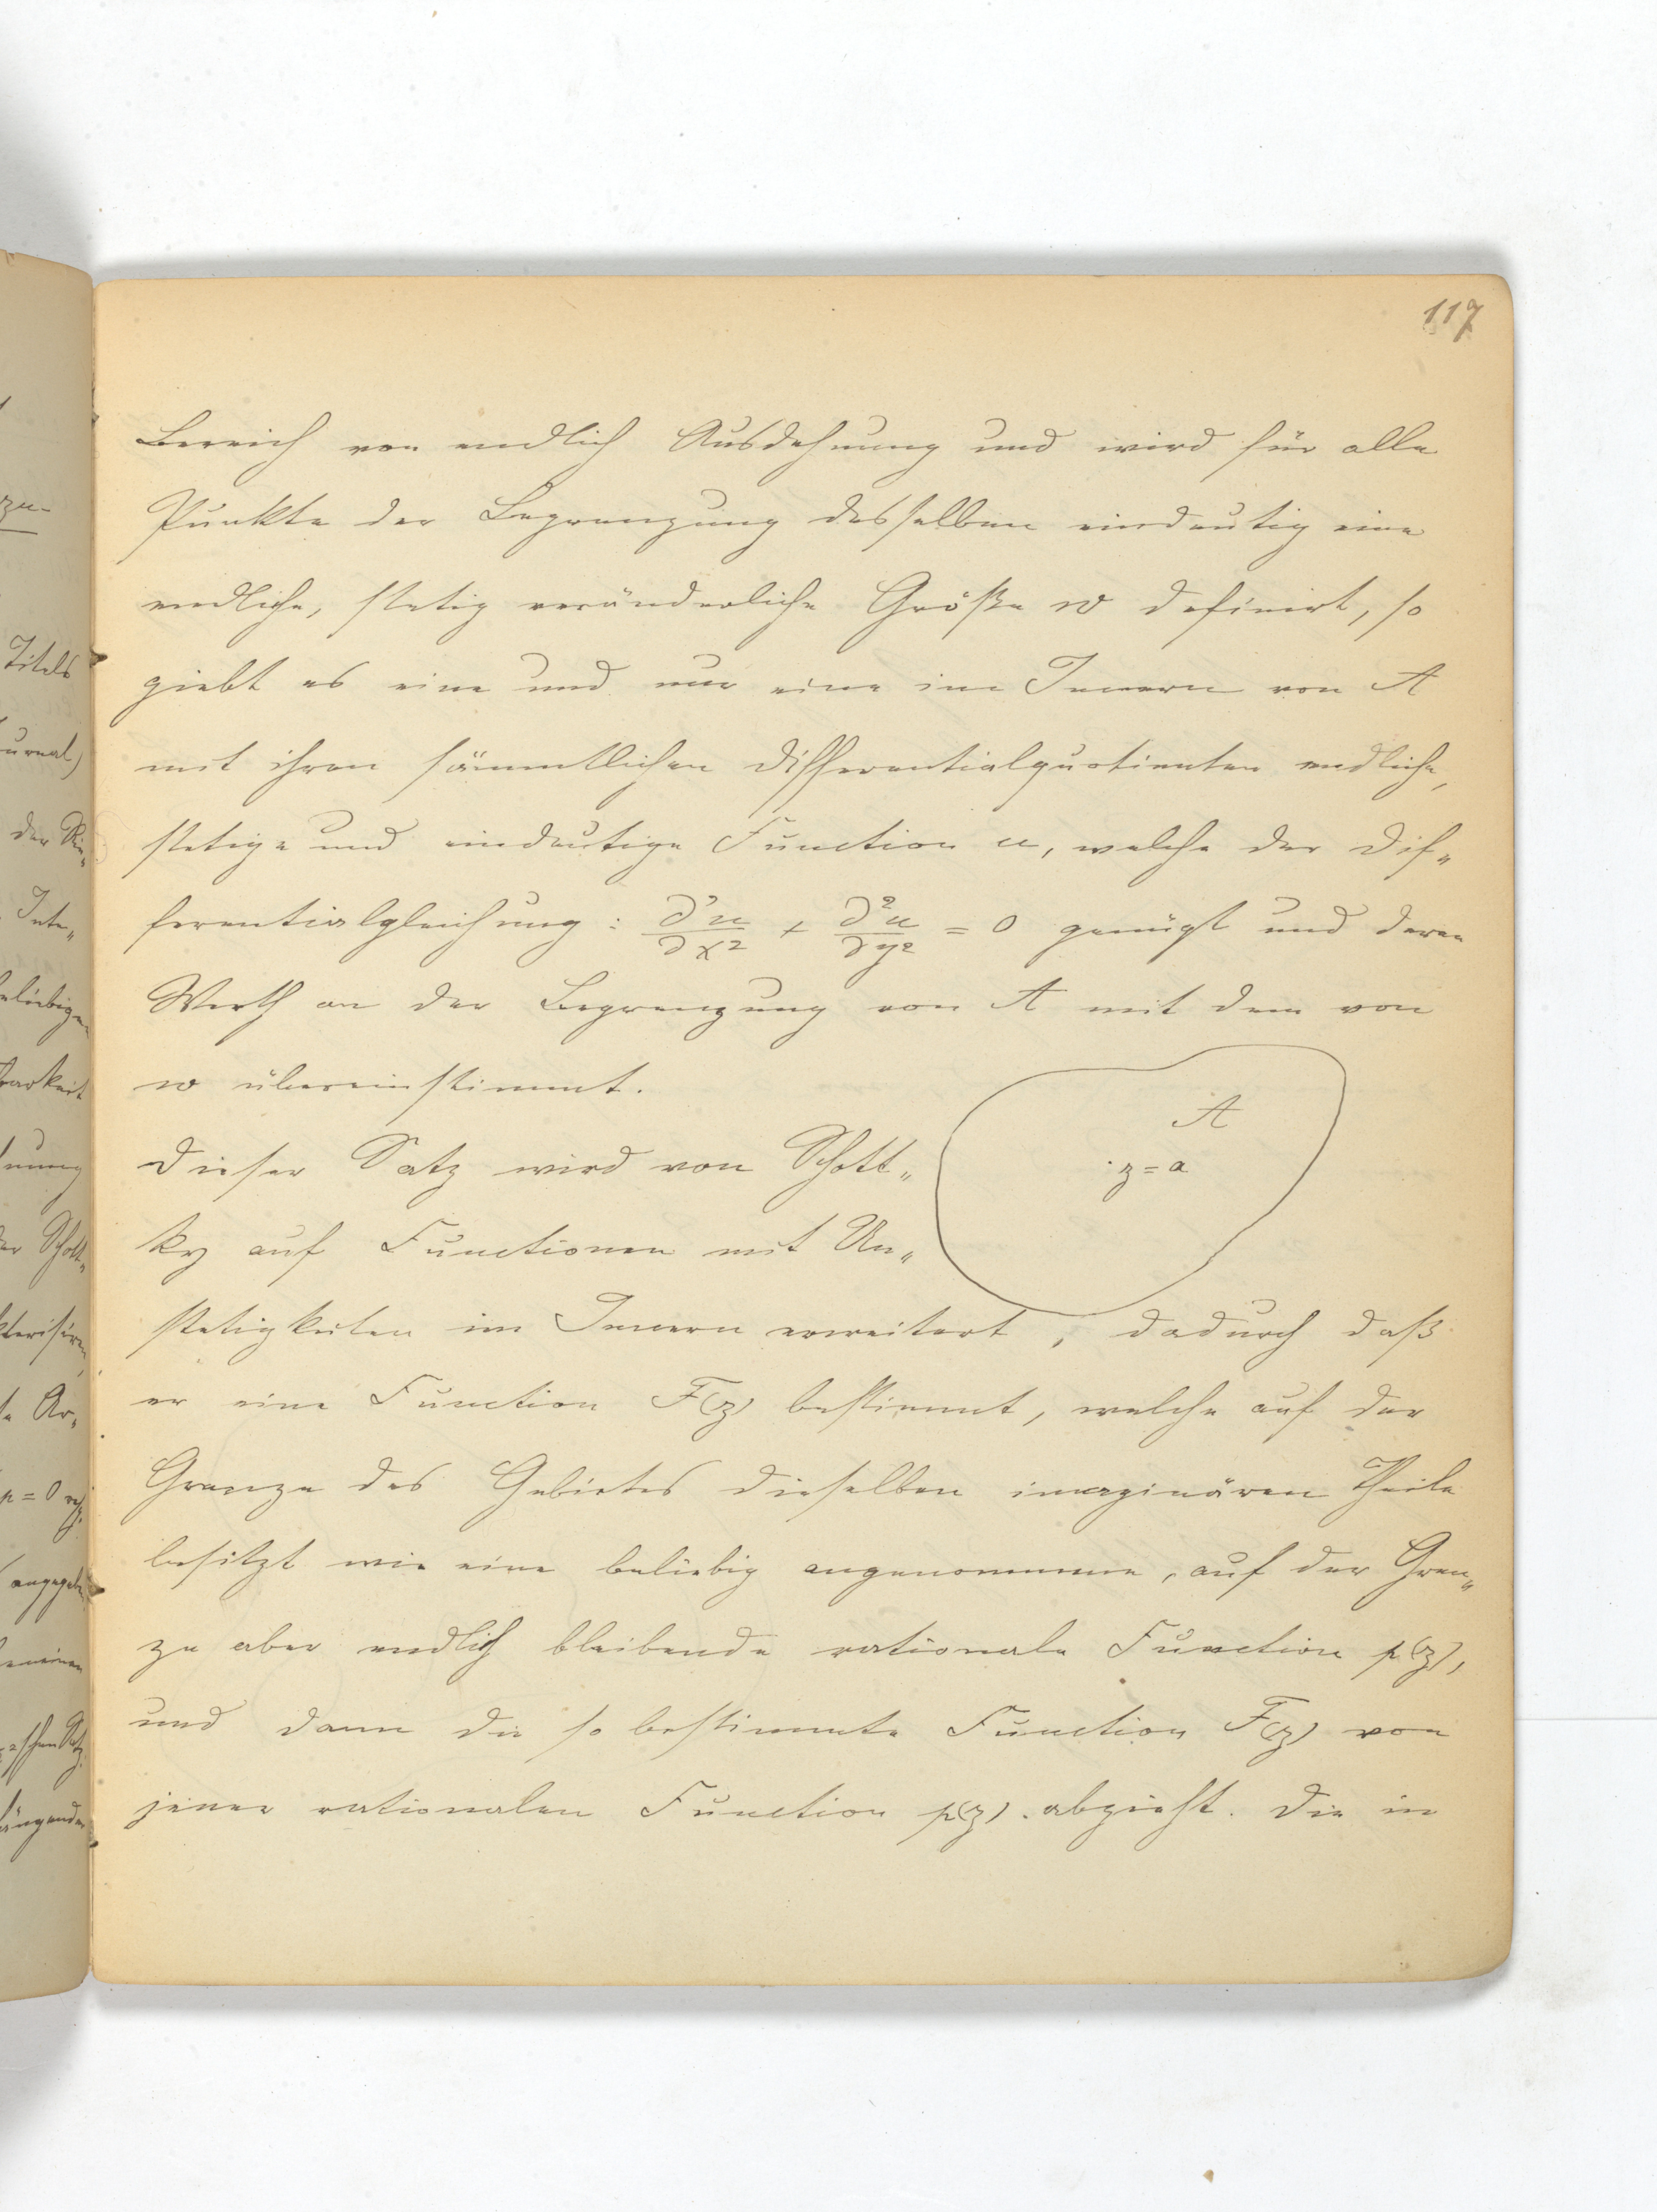 117
Bereich von endlich Ausdehnung und wird für alle
Punkte der Begrenzung desselben eindeutig eine
endliche, stetig veränderliche Größe w definirt, so
giebt es eine und nur eine im Innern von A
mit ihren sämmtlichen Differentialquotienten endliche,
stetige und eindeutige Function u, welche der Dif„
ferentialgleichung: ∂²u/∂x² + ∂²u/∂y² = 0 genügt und deren
Werth an der Begrenzung von A mit dem von
w übereinstimmt.
A
z = a
Dieser Satz wird von Schott„
ky auf Functionen mit Un„
stetigkeiten im Innern erweitert, dadurch daß
er eine Function F(z) bestimmt, welche auf der
Grenze des Gebietes dieselben imaginären Theile
besitzt wie eine beliebig angenommene, auf der Gren„
ze aber endlich bleibende rationale Function p(z),
und dann die so bestimmte Function F(z) von
jener rationalen Function p(z) abzieht. Die in
Titels
der
Inte„
p = 0